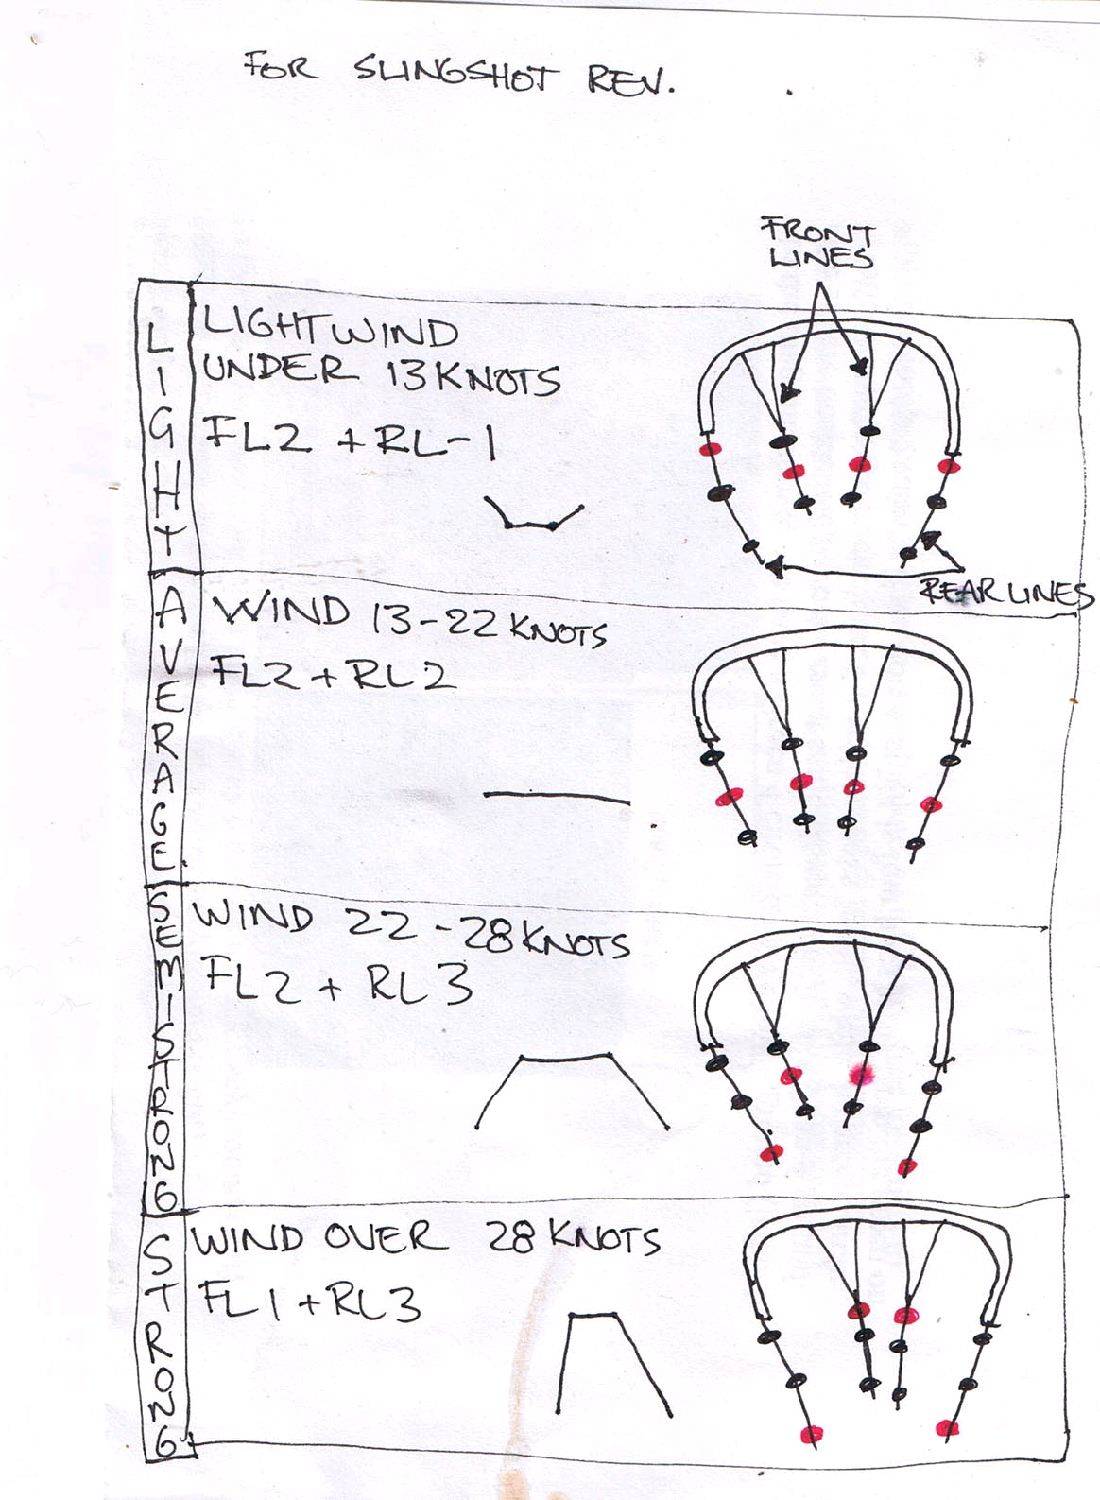 FOR SLINGSHOT REV.
FRONT
LINES
LIGHT
LIGHT WIND
UNDER 13 KNOTS
FL2 + RL-1
REAR LINES
AVERAGE
WIND 13-22 KNOTS
FL2 + RL2
SEMISTRONG
WIND 22-28 KNOTS
FL2 + RL3
STRONG
WIND OVER 28 KNOTS
FL1 + RL3